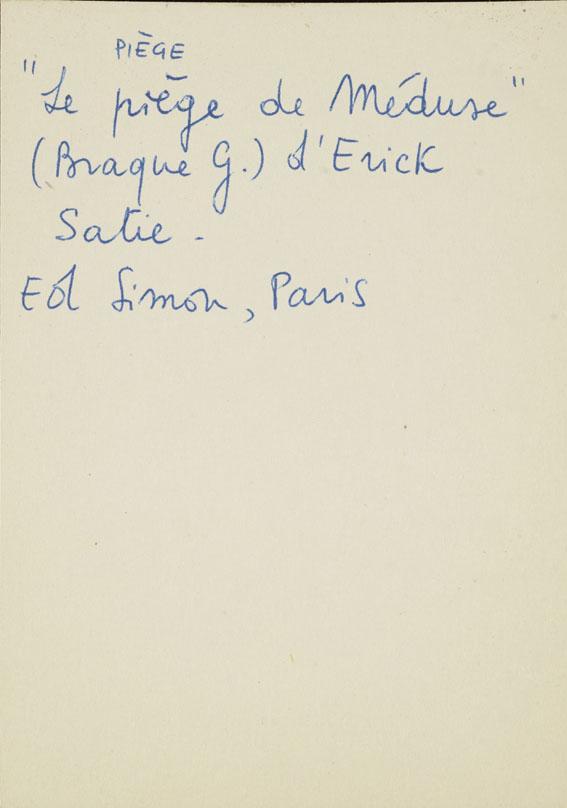 PIÈGE
"Le piège de Méduse"
(Braque G.) d'Erick
Satie -
Ed Simon, Paris